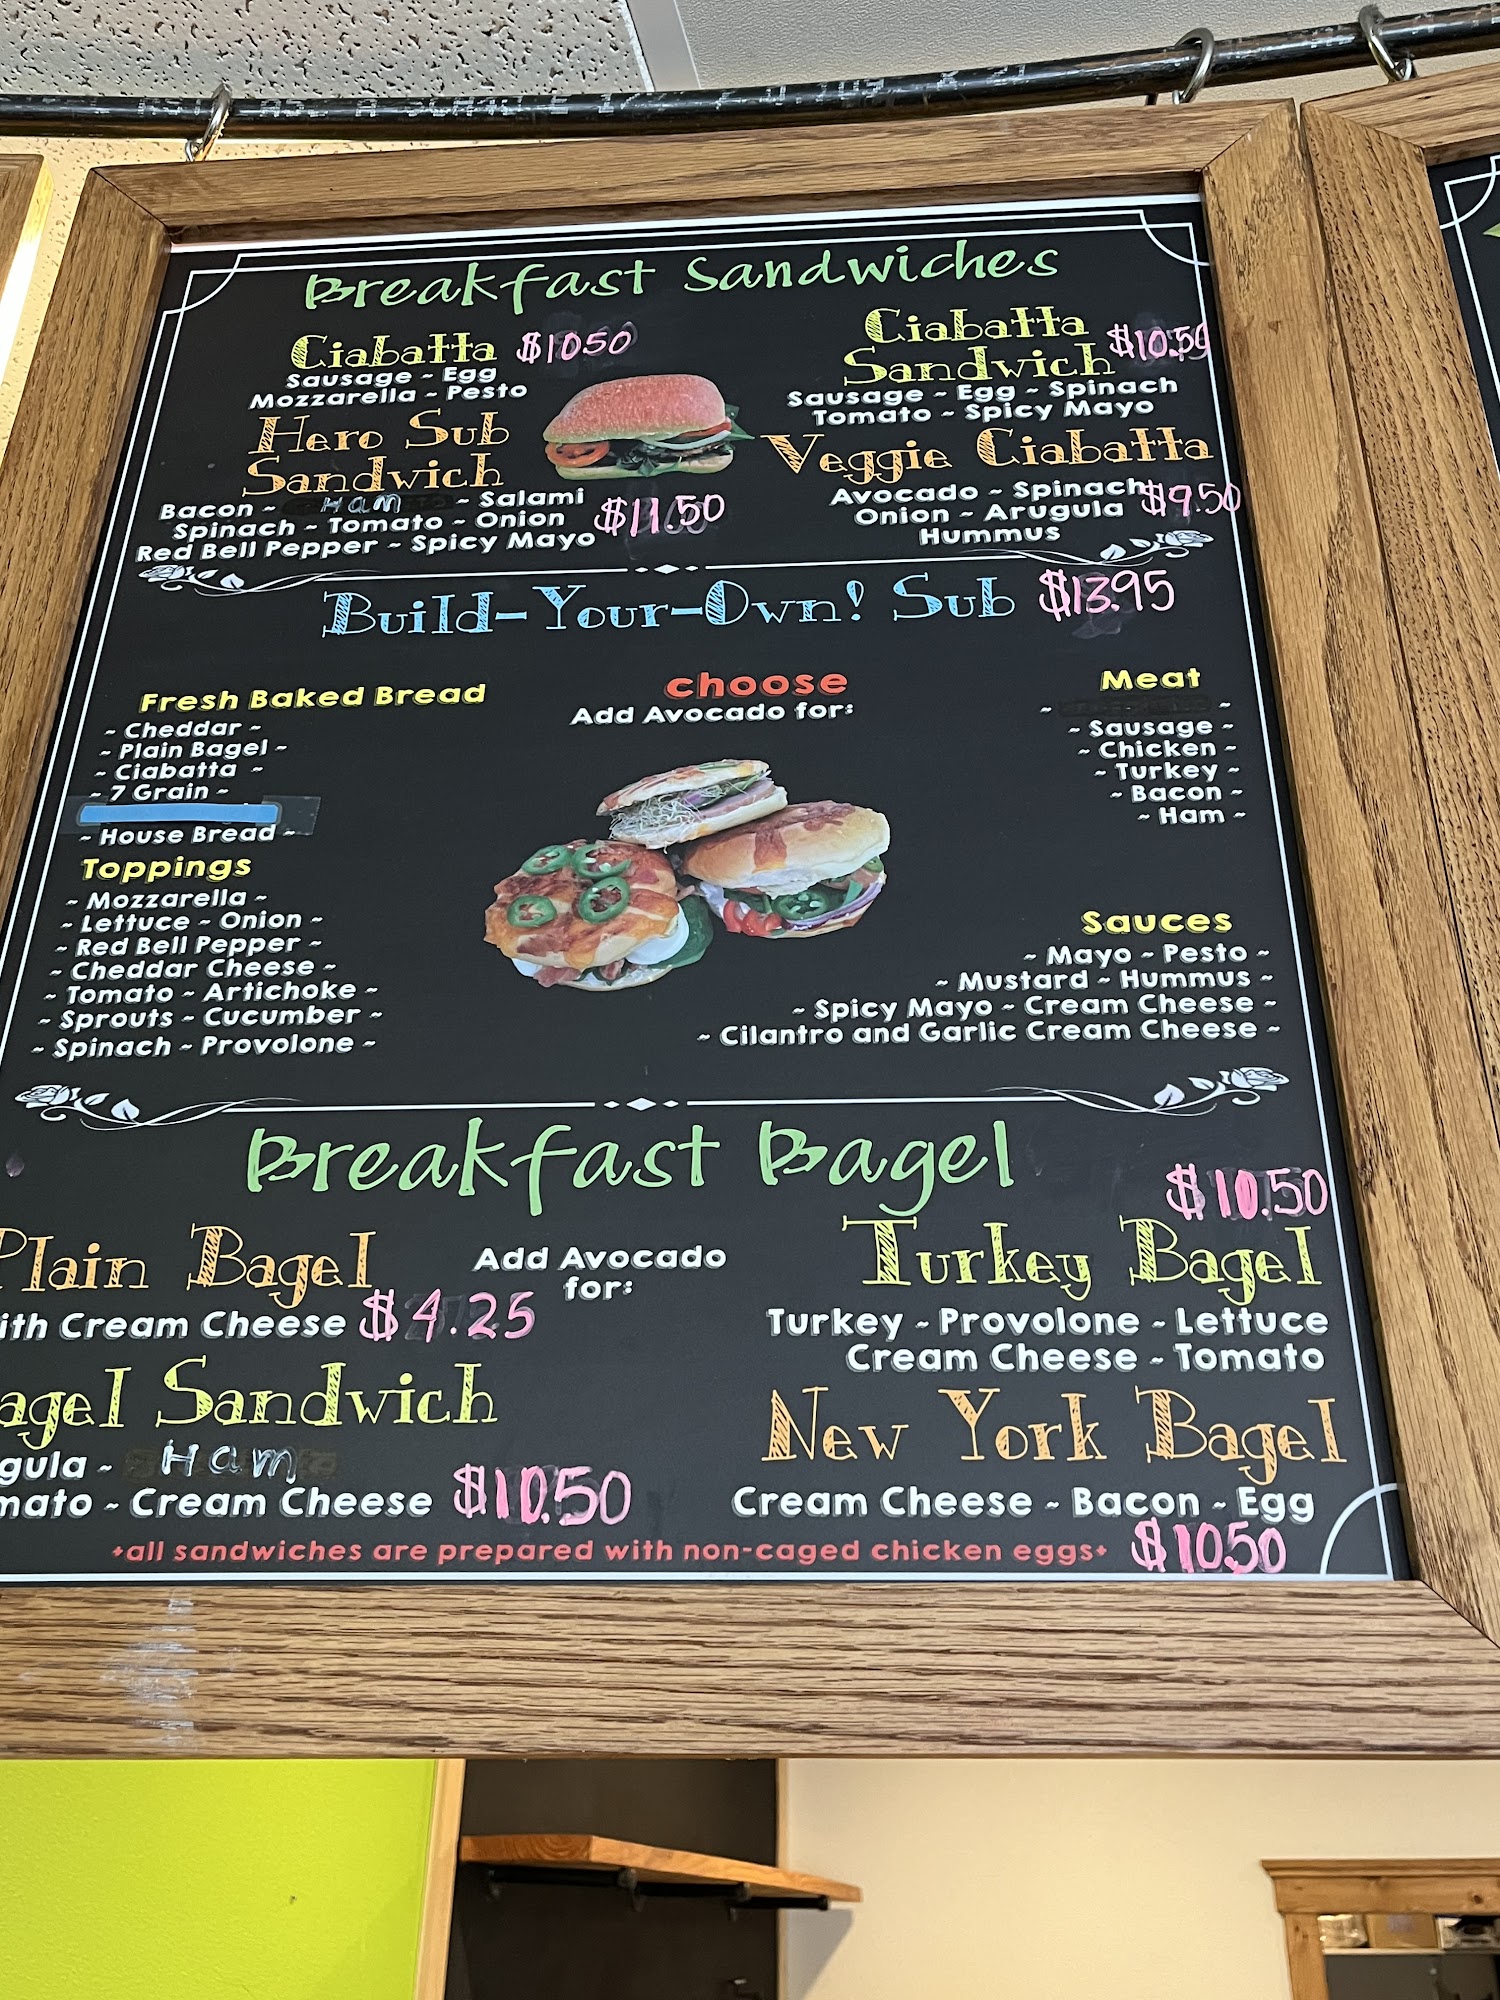 Breakfast Sandwiches
Ciabatta $10.50
Sausage ~ Egg
Mozzarella ~ Pesto
Hero Sub
Sandwich
Bacon ~ Ham ~ Salami
Spinach ~ Tomato ~ Onion
Red Bell Pepper ~ Spicy Mayo
$11.50
Ciabatta
Sandwich $10.50
Sausage ~ Egg ~ Spinach
Tomato ~ Spicy Mayo
Veggie Ciabatta
Avocado ~ Spinach
Onion ~ Arugula $9.50
Hummus
Build-Your-Own! Sub $13.95
Fresh Baked Bread
~ Cheddar ~
~ Plain Bagel ~
~ Ciabatta ~
~ 7 Grain ~
~ House Bread ~
Toppings
~ Mozzarella ~
~ Lettuce ~ Onion ~
~ Red Bell Pepper ~
~ Cheddar Cheese ~
~ Tomato ~ Artichoke ~
~ Sprouts ~ Cucumber ~
~ Spinach ~ Provolone ~
choose
Add Avocado for:
Meat
~ ~
~ Sausage ~
~ Chicken ~
~ Turkey ~
~ Bacon ~
~ Ham ~
Sauces
~ Mayo ~ Pesto ~
~ Mustard ~ Hummus ~
~ Spicy Mayo ~ Cream Cheese ~
~ Cilantro and Garlic Cream Cheese ~
Breakfast Bagel
Plain Bagel
ith Cream Cheese $4.25
agel Sandwich
gula ~ Ham
mato ~ Cream Cheese $10.50
Add Avocado
for:
$10.50
Turkey Bagel
Turkey ~ Provolone ~ Lettuce
Cream Cheese ~ Tomato
New York Bagel
Cream Cheese ~ Bacon ~ Egg
$10.50
*all sandwiches are prepared with non-caged chicken eggs*